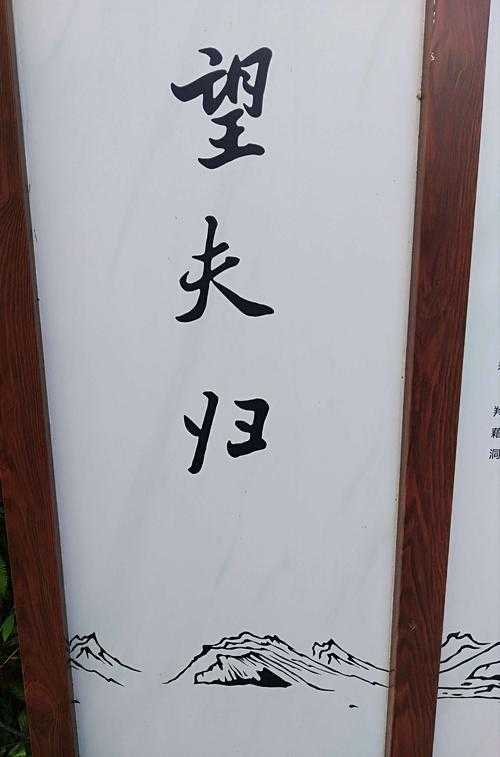 望夫归